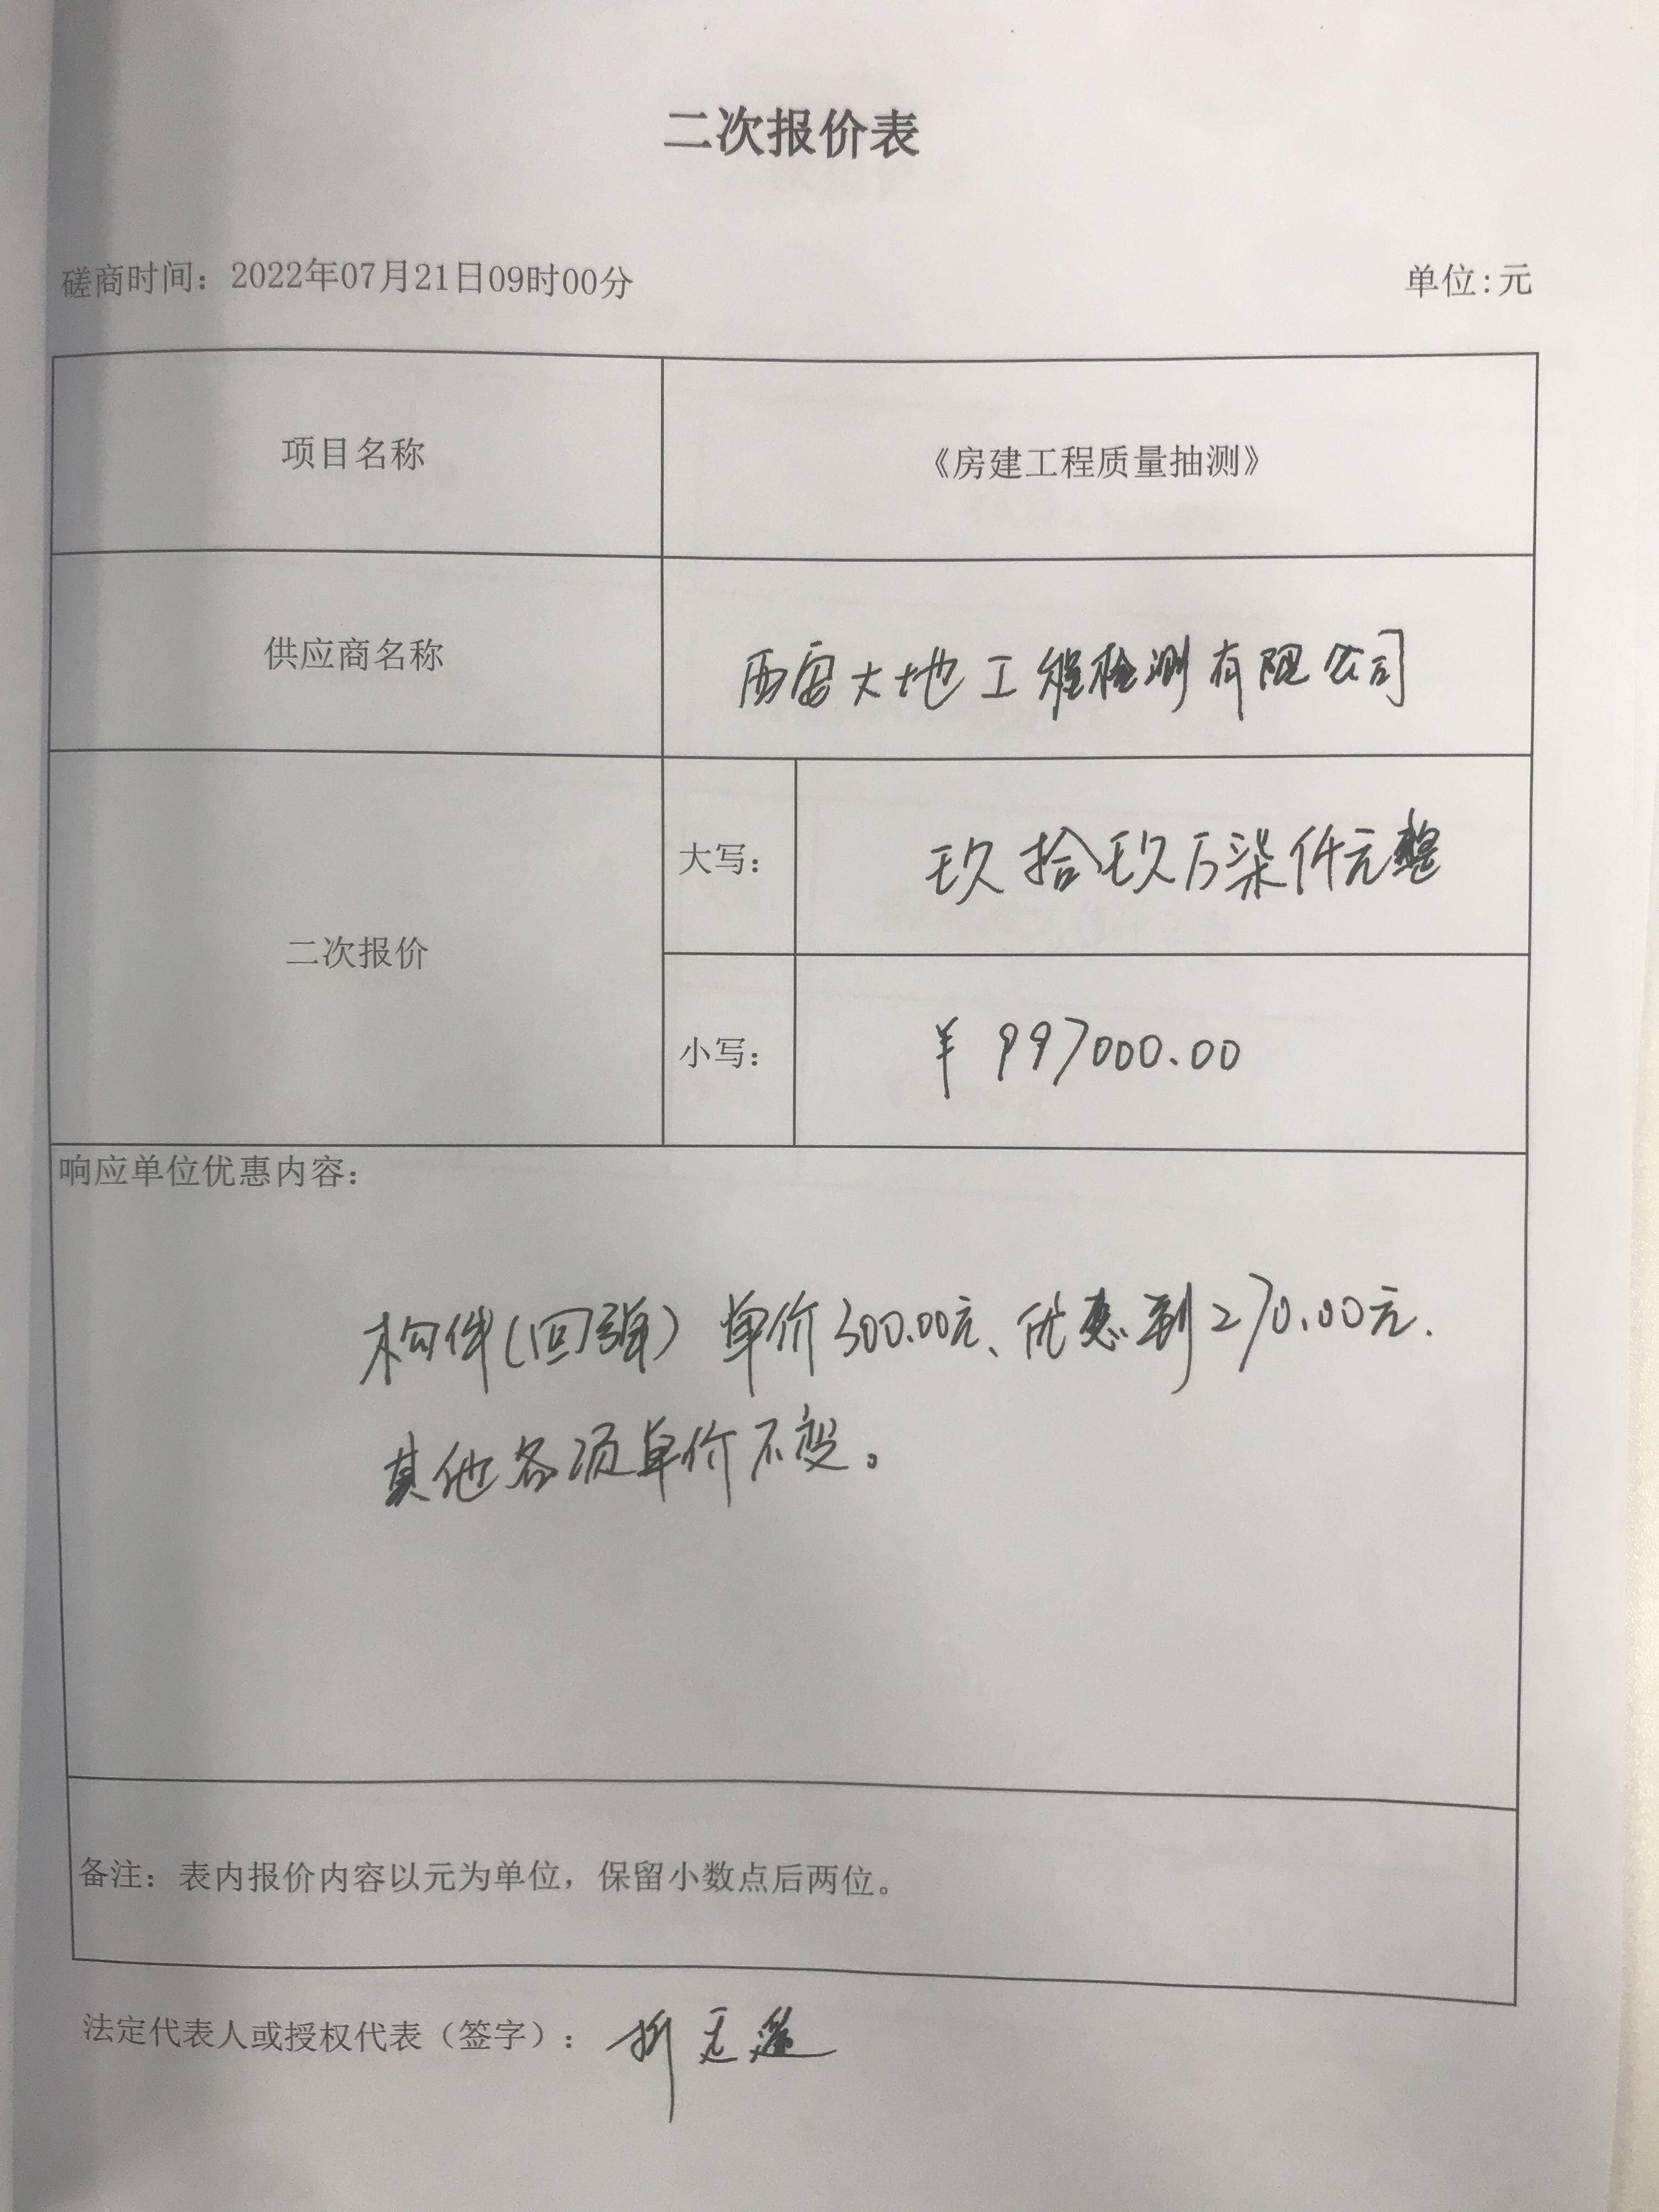 二次报价表
磋商时间：2022年07月21日09时00分 单位:元
项目名称 《房建工程质量抽测》
供应商名称 西安大地工程检测有限公司
二次报价
大写： 玖拾玖万柒仟元整
小写： ¥ 997000.00
响应单位优惠内容：
构件(回弹) 单价300.00元、优惠到270.00元.
其他各项单价不变。
备注：表内报价内容以元为单位，保留小数点后两位。
法定代表人或授权代表（签字）：